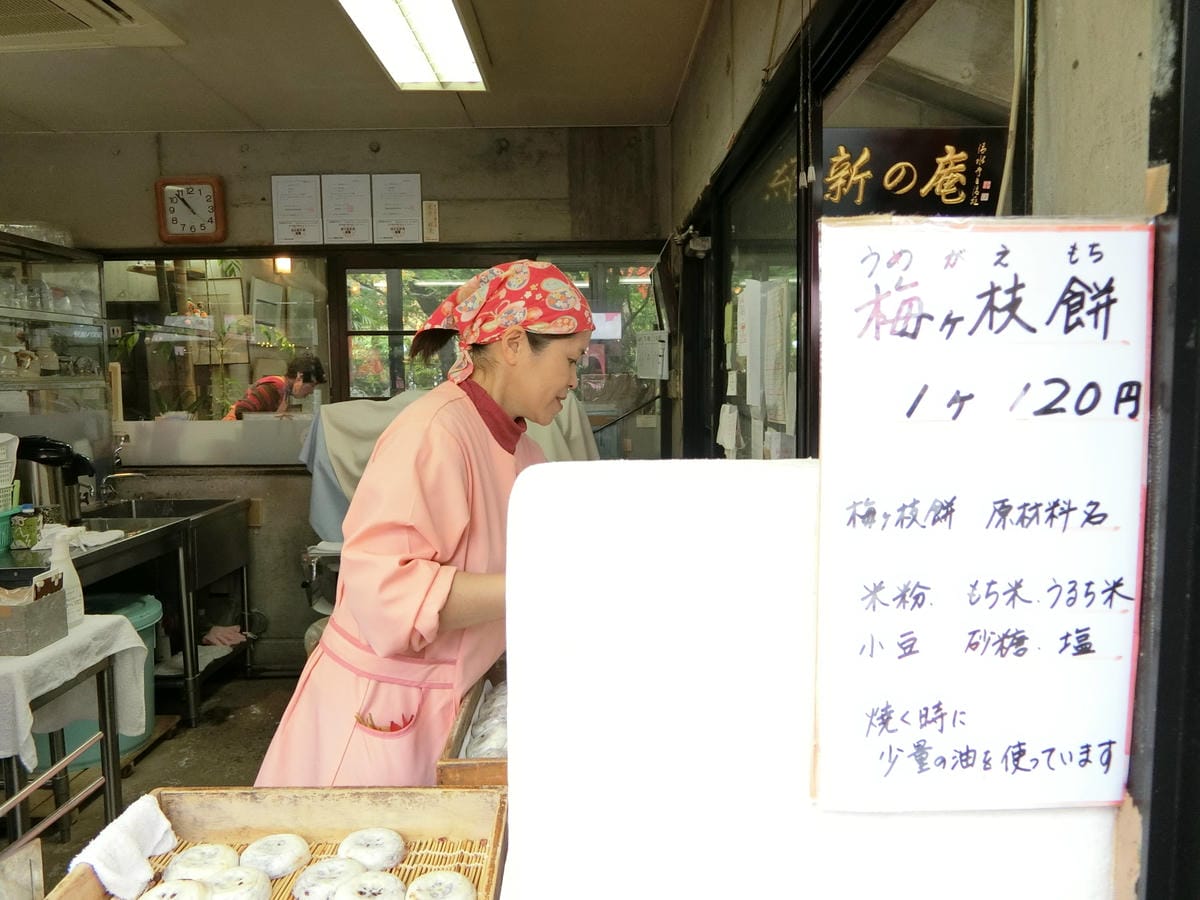 新の庵
うめ が え もち
梅ヶ枝餅
1ヶ 120円
梅ヶ枝餅 原材料名
米粉. もち米.うるち米
小豆 砂糖. 塩
焼く時に
少量の油を使っています
12
11
10
9
8
7
6
5
4
3
2
1